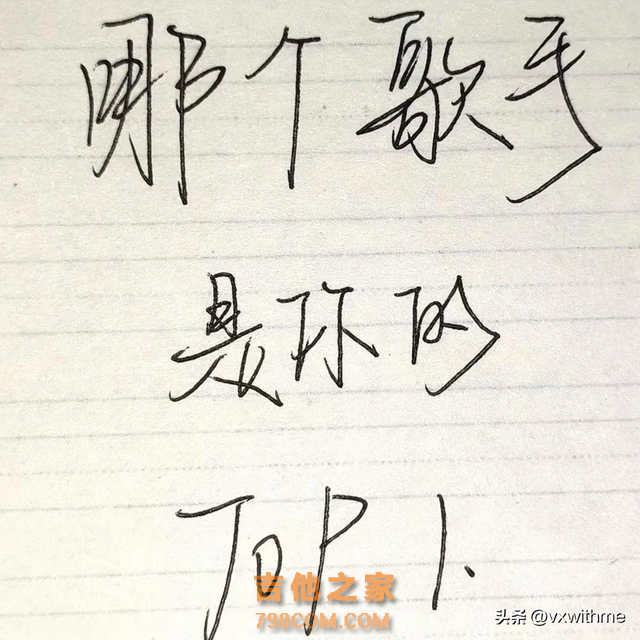 哪个歌手
是你的
TOP 1.
吉他之家
798COM.COM
头条 @vxwithme